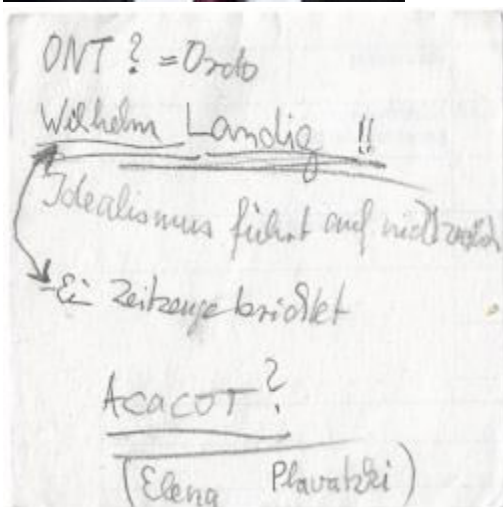 ONT? = Ordo
Wilhelm Landig !!
Idealismus führt auf
- Ein Zeitzeuge berichtet
ACACOT?
(Elena Plavatzki)